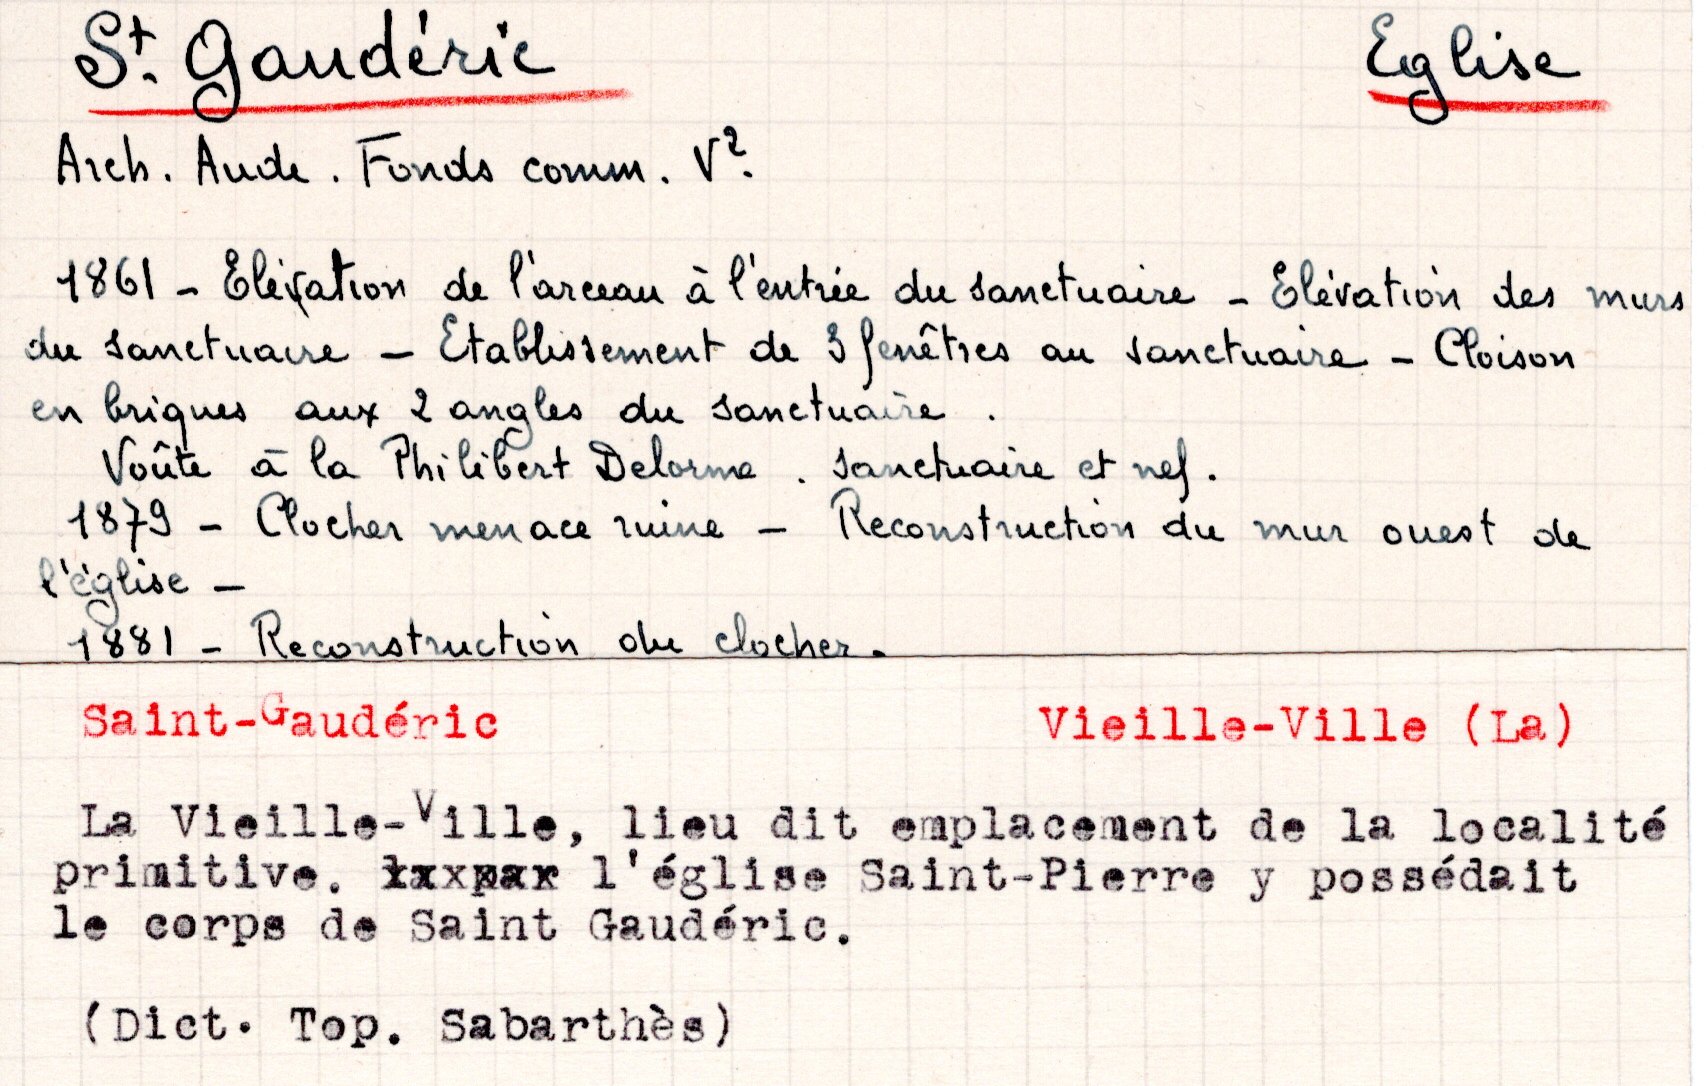 St. Gaudéric Eglise
Arch. Aude. Fonds comm. V².
1861 - Elévation de l'arceau à l'entrée du sanctuaire - Elévation des murs
du sanctuaire - Etablissement de 3 fenêtres au sanctuaire - Cloison
en briques aux 2 angles du sanctuaire.
Voûte à la Philibert Delorme. sanctuaire et nef.
1879 - Clocher menace ruine - Reconstruction du mur ouest de
l'église -
1881 - Reconstruction du clocher.
Saint-Gaudéric Vieille-Ville (La)
La Vieille-Ville, lieu dit emplacement de la localité
primitive. l'église Saint-Pierre y possédait
le corps de Saint Gaudéric.
(Dict. Top. Sabarthès)